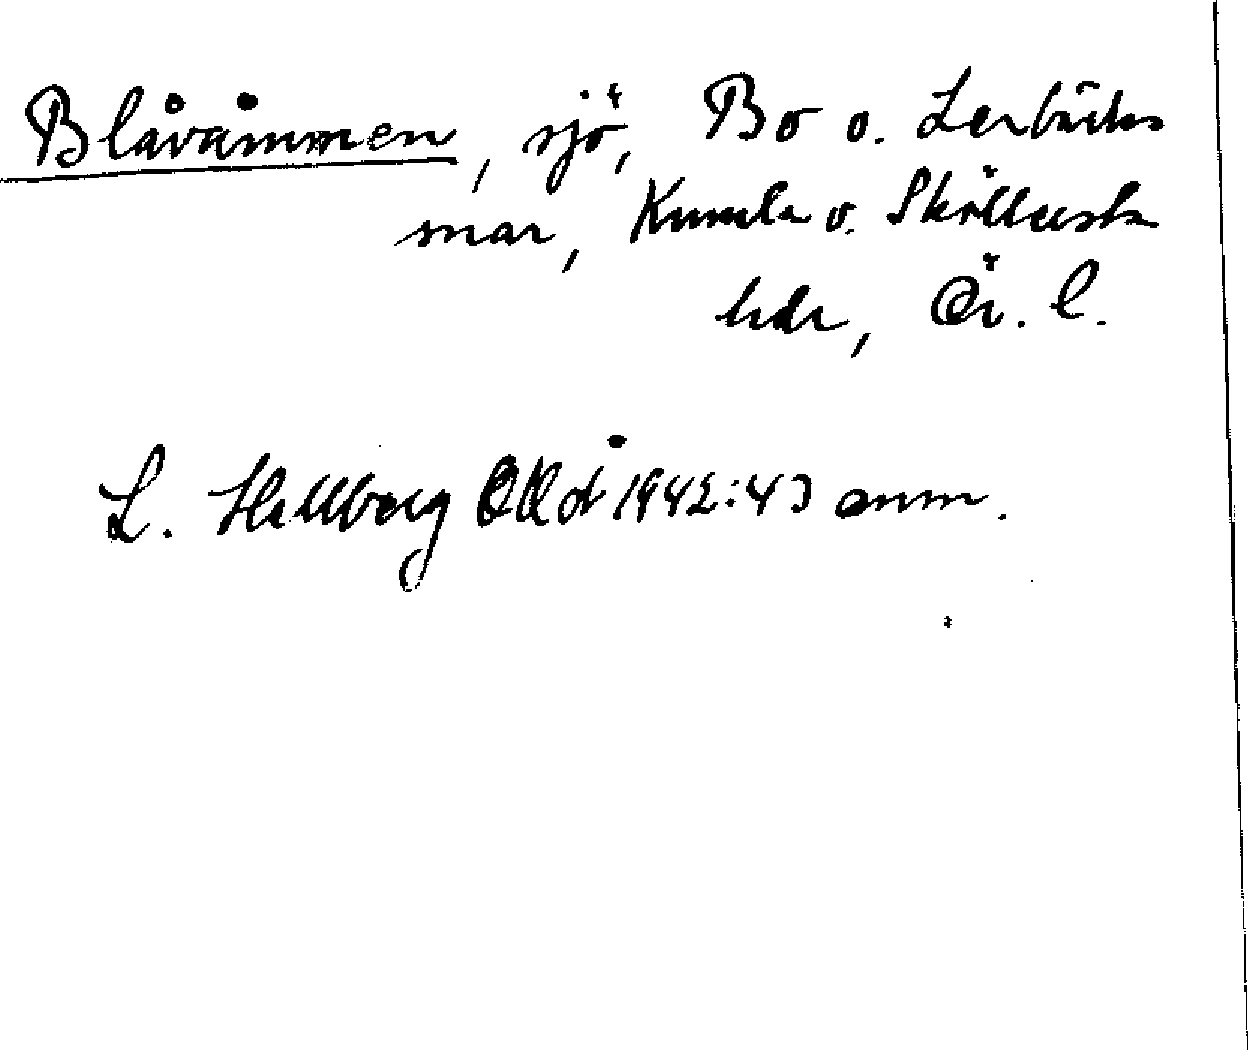 Blåvåmmen, sjö, Bo o. Lerbäcks
snar, Kumla o. Sköllersta
hdr, Ör. l.
L. Hellberg 1942:43 anm.